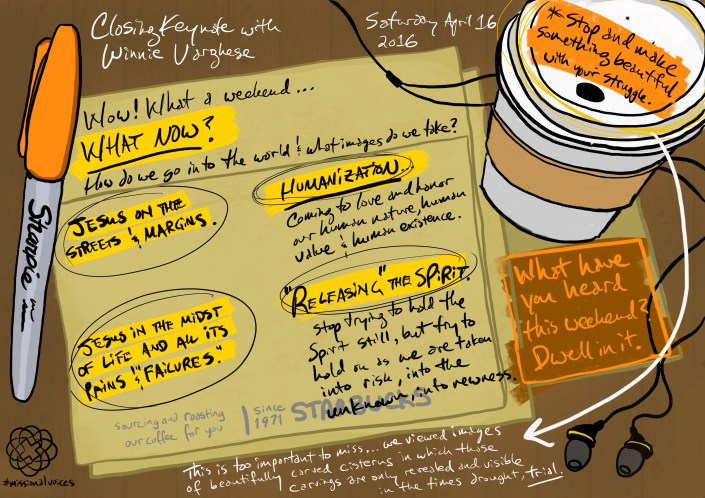 Closing Keynote with
Winnie Varghese
Saturday April 16
2016
* Stop and make
something beautiful
with your struggle.
Wow! What a weekend...
WHAT NOW?
How do we go into the world & what images do we take?
JESUS ON THE
STREETS & MARGINS.
HUMANIZATION.
Coming to love and honor
our human nature, human
value & human existence.
"RELEASING" THE SPIRIT.
stop trying to hold the
Spirit still, but try to
hold on as we are taken
into risk, into the
unknown, into newness.
JESUS IN THE MIDST
OF LIFE AND ALL ITS
PAINS & "FAILURES."
What have
you heard
this weekend?
Dwell in it.
Sharpie
sourcing and roasting
our coffee for you
since
1971
STARBUCKS
This is too important to miss... we viewed images
of beautifully carved cisterns in which those
carvings are only revealed and visible
in the times drought, trial.
#missionalvoices